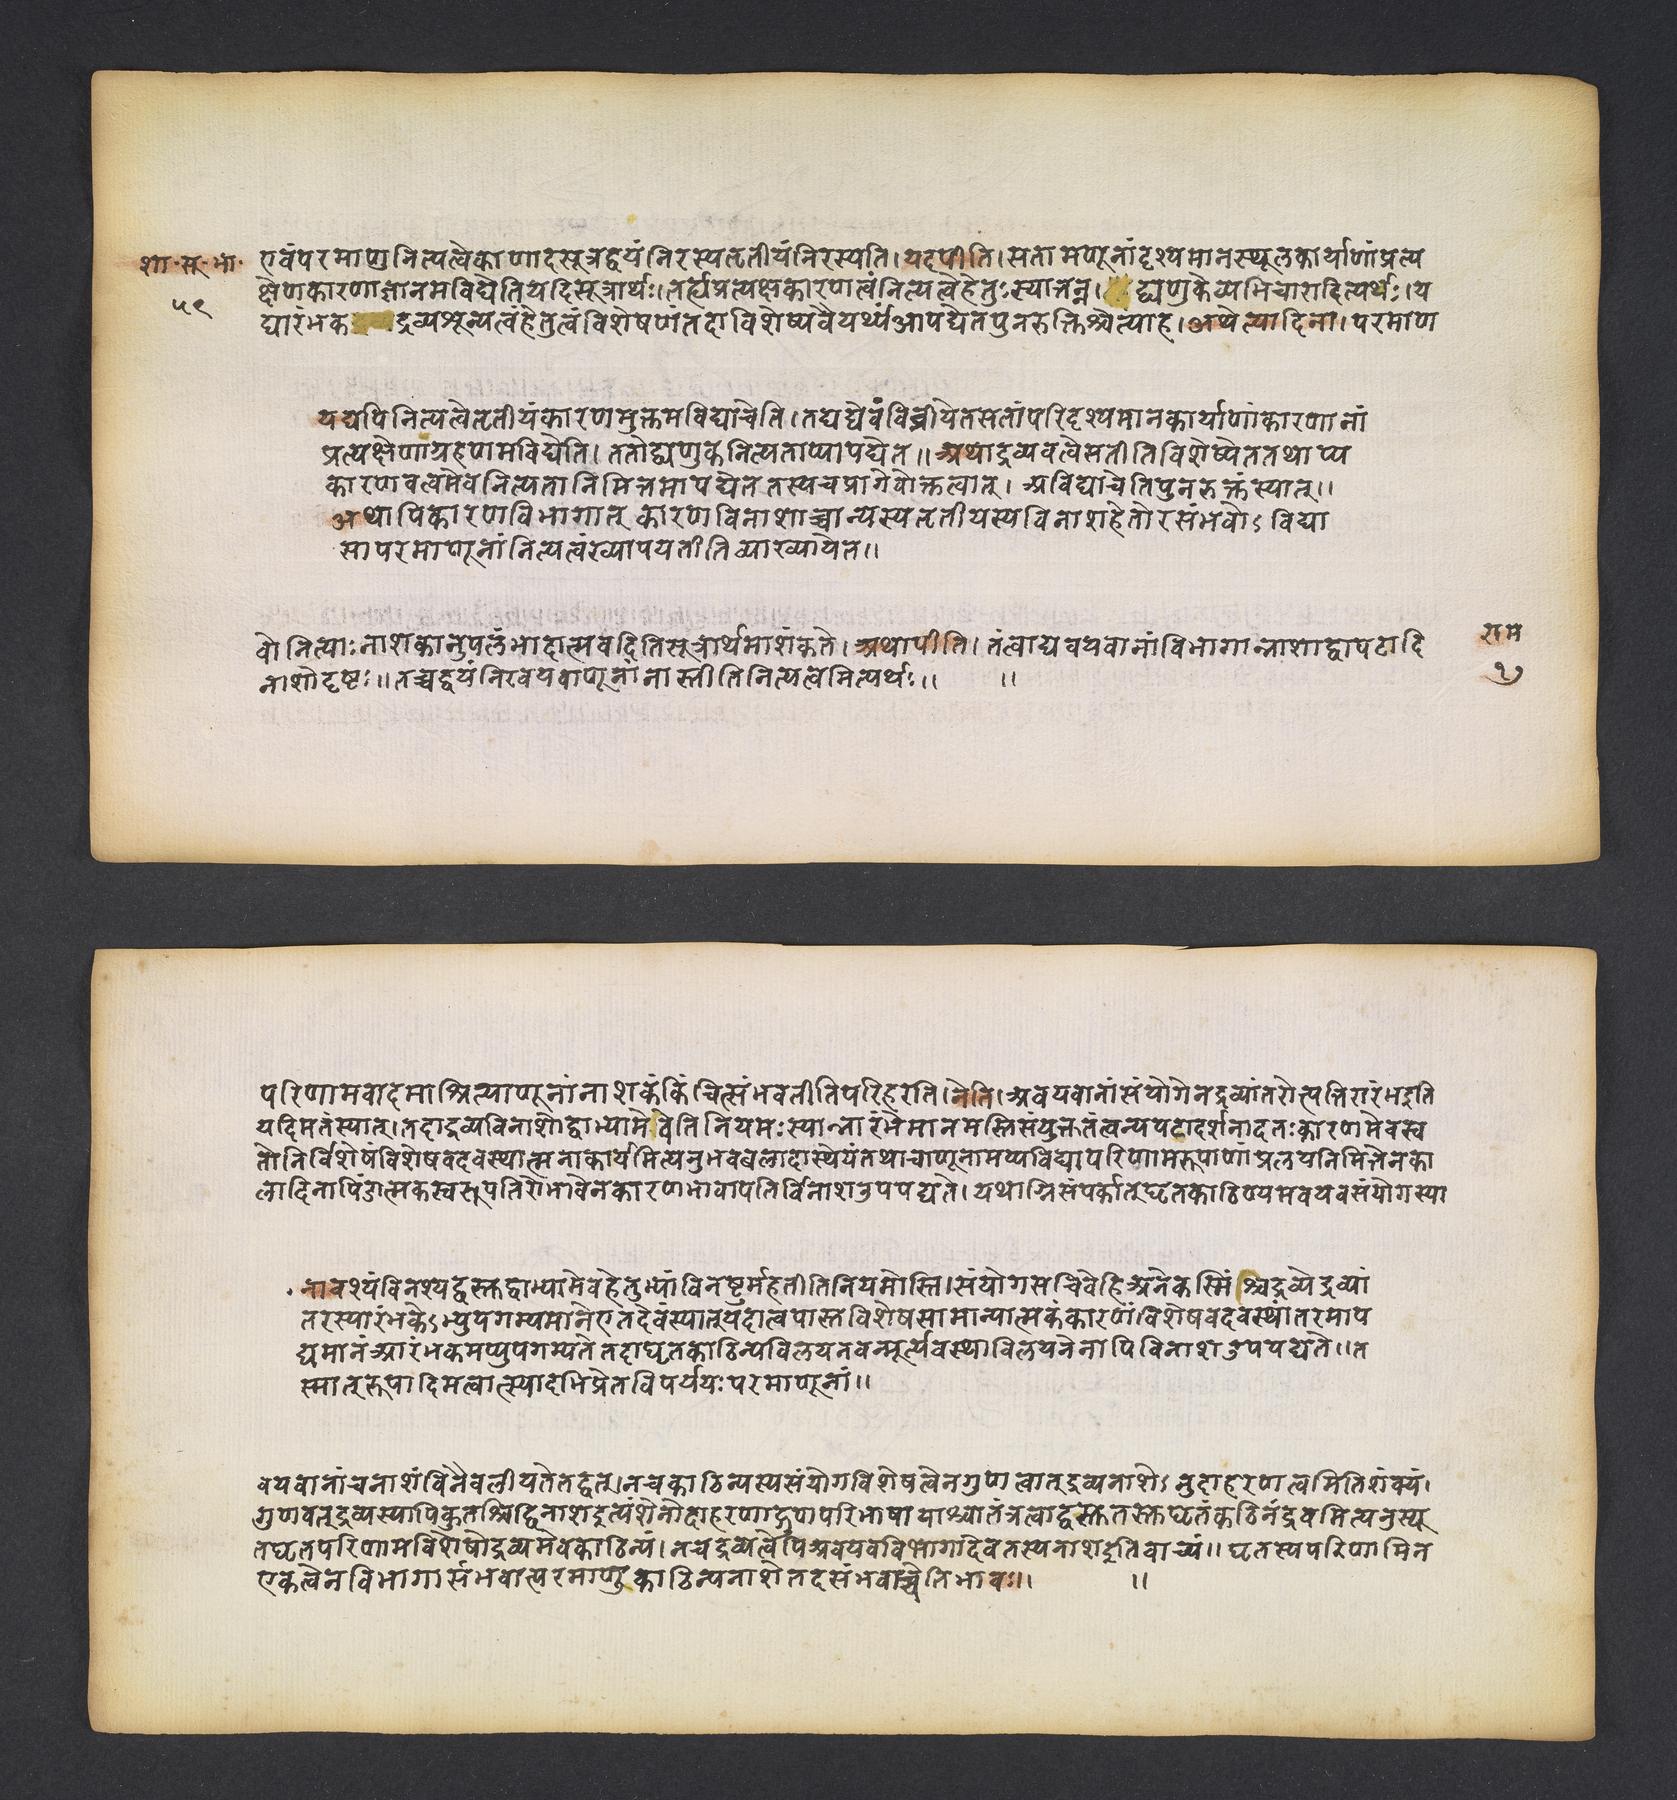 शा॰सू॰भा॰
५९
एवंपरमाणुनित्यत्वेकाणादसूत्रद्वयंनिरस्यतृतीयंनिरस्यति।यदपीति।सतामणूनांदृश्यमानस्थूलकार्याणांप्रत्य
क्षेणकारणाज्ञानमविद्येतियदिसूत्रार्थः।तर्ह्यप्रत्यक्षकारणत्वंनित्यत्वेहेतुःस्यात्तन्न। द्व्यणुकेव्यभिचारादित्यर्थः।य
द्यारंभक द्रव्यशून्यत्वंहेतुत्वंविशेषणंतदाविशेष्यवैयर्थ्यंआपद्येतपुनरुक्तिश्चेत्याह।अथेत्यादिना।परमाण
यद्यपिनित्यत्वेतृतीयंकारणमुक्तमविद्याचेति।तद्यद्येवंविव्रीयेतसतांपरिदृश्यमानकार्याणांकारणानां
प्रत्यक्षेणाग्रहणमविद्येति।ततोद्व्यणुकनित्यताप्यापद्येत॥अथाद्रव्यवत्वेसतीतिविशेष्येततथाप्य
कारणवत्वमेवनित्यतानिमित्तमापद्येततस्यचप्रागेवोक्तत्वात्।अविद्याचेतिपुनरुक्तंस्यात्॥
अथापिकारणविभागात्कारणविनाशाच्चान्यस्यतृतीयस्यविनाशहेतोरसंभवोऽविद्या
सापरमाणूनांनित्यत्वंख्यापयतीतिव्याख्यायेत॥
वोनित्याःनाशकानुपलंभादात्मवदितिसूत्रार्थमाशंकते।अथापीति।तंत्वाद्यवयवानांविभागान्नाशाद्वापटादि
नाशोदृष्टः॥तच्चद्वयंनिरवयवाणूनांनास्तीतिनित्यत्वमित्यर्थः॥ ॥
राम
१७
परिणामवादमाश्रित्याणूनांनाशकंकिंचित्संभवतीतिपरिहरति।नेति।अवयवानांसंयोगेनद्रव्यांतरोत्पत्तिरारंभइति
यदिमतंस्यात्।तदाद्रव्यविनाशोद्वाभ्यामेवेतिनियमःस्यान्नारंभेमानमस्तिसंयुक्ततंत्वन्यपटादर्शनादतःकारणमेवस्व
तोनिर्विशेषंविशेषवदवस्थात्मनाकार्यमित्यनुभवबलादास्थेयंतथाचाणूनामप्यविद्यापरिणामरूपाणांप्रलयनिमित्तेनका
लादिनापिंडात्मकस्वरूपतिरोभावेनकारणभावापत्तिर्विनाशउपपद्यते।यथाग्निसंपर्कात्घृतकाठिण्यमवयवसंयोगस्या
नावश्यंविनश्यद्वस्तुद्वाभ्यामेवहेतुभ्यांविनष्टुमर्हतीतिनियमोस्ति।संयोगसचिवेहिअनेकस्मिंश्चद्रव्येद्रव्यां
तरस्यारंभकेऽभ्युपगम्यमानेएतदेवंस्यात्यदात्वपास्तविशेषसामान्यात्मकंकारणंविशेषवदवस्थांतरमाप
द्यमानंआरंभकमप्युपगम्यते तदाघृतकाठिन्यविलयनवन्मूर्त्यवस्थाविलयनेनापिविनाशउपपद्यते॥त
स्मात्रूपादिमत्वात्स्यादभिप्रेतविपर्ययःपरमाणूनां॥
वयवानांचनाशंविनैवलीयतेतद्वत्।नचकाठिन्यस्यसंयोगविशेषत्वेनगुणत्वात्द्रव्यनाशेऽनुदाहरणत्वमितिशंक्यं।
गुणवत्द्रव्यस्यापिकुतश्चिद्विनाशइत्यंशेनोदाहरणाद्गुणपरिभाषायाश्चातंत्रत्वाद्वस्तुतस्तुघृतंकठिनंद्रवमित्यनुस्यू
तघृतपरिणामविशेषोद्रव्यमेवकाठिन्यं।नचद्रव्यत्वेपिअवयवविभागादेवतस्यनाशइतिवाच्यं॥घृतस्यपरिणामिन
एकत्वेनविभागासंभवात्परमाणुकाठिन्यनाशेतदसंभवाच्चेतिभावः॥ ॥